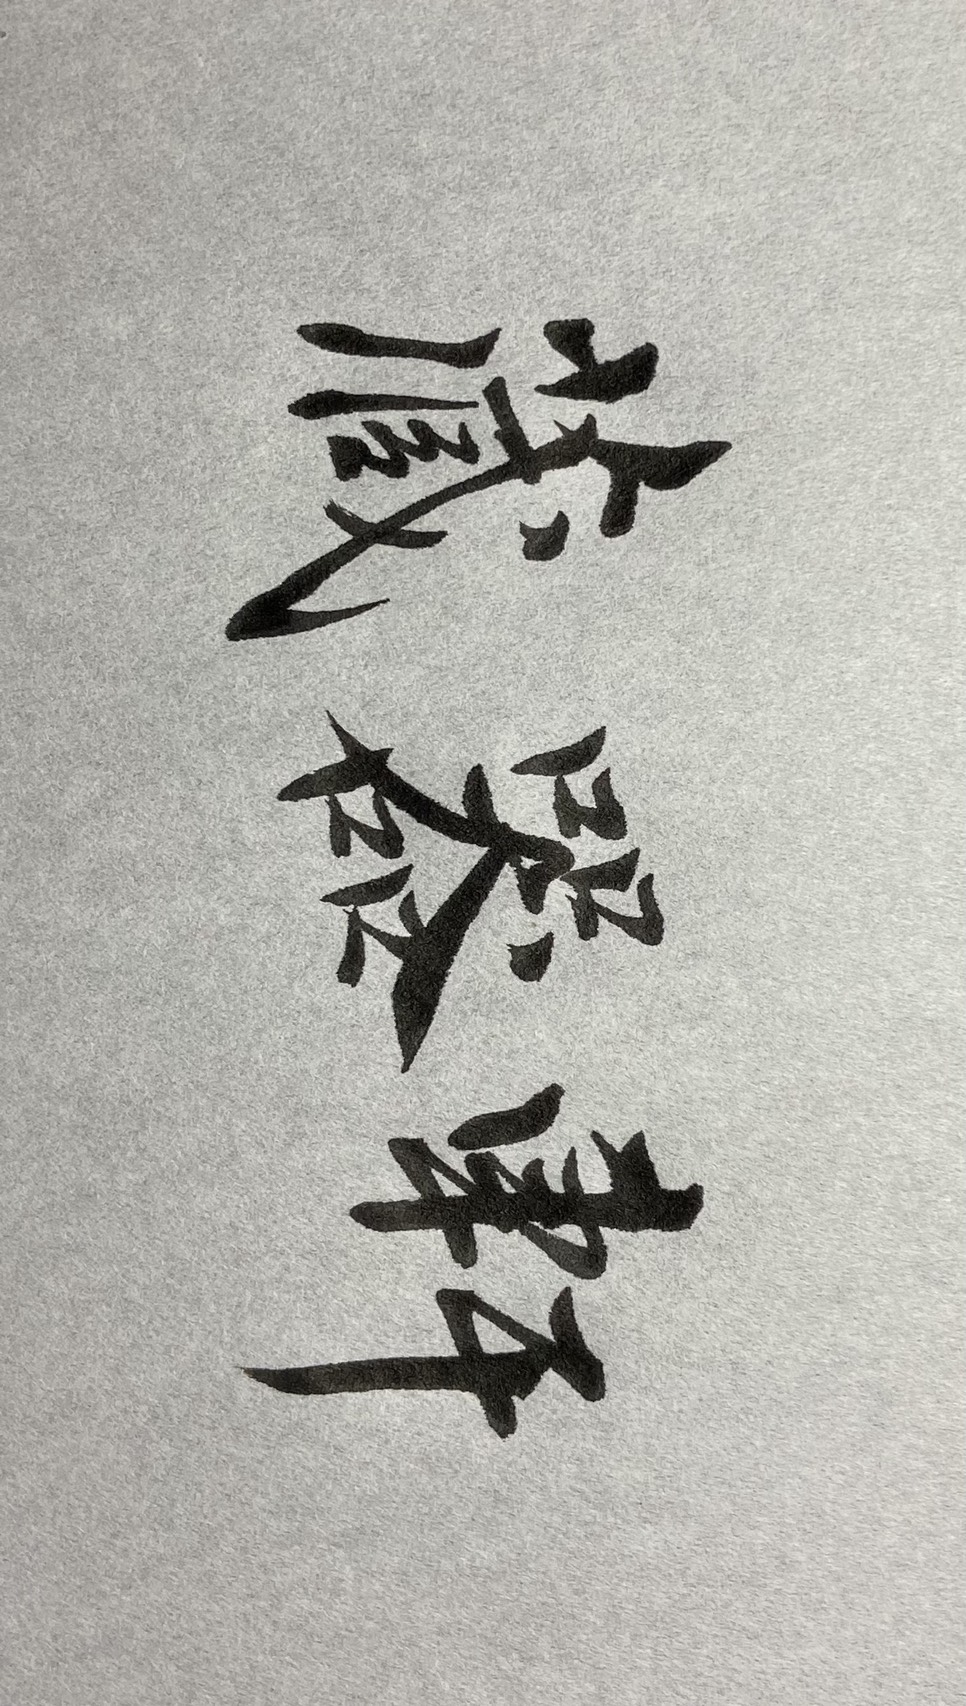 藏器軒